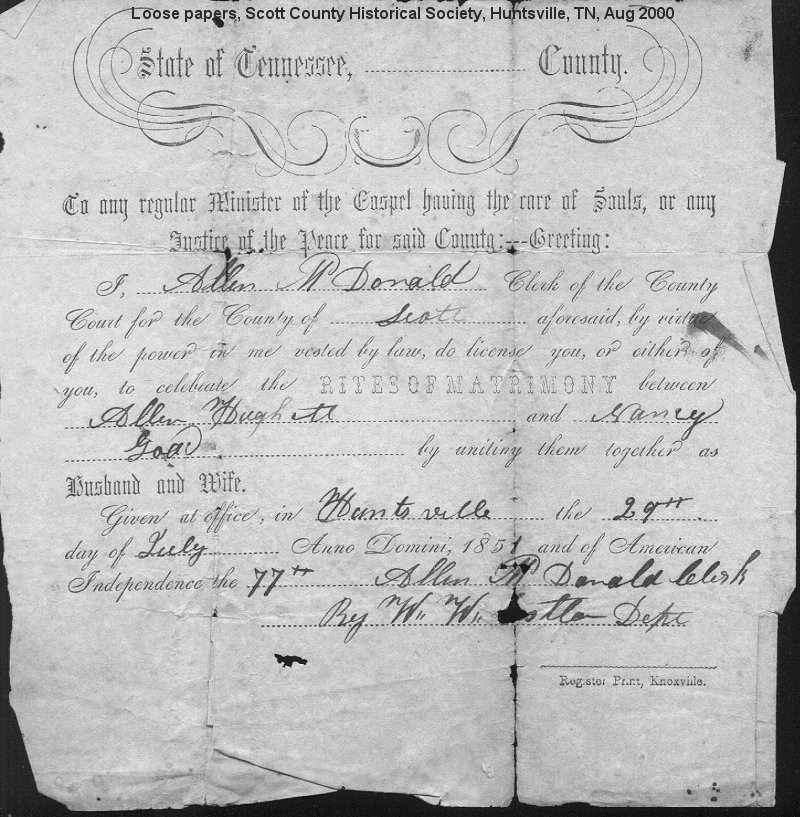 Loose papers, Scott County Historical Society, Huntsville, TN, Aug 2000
State of Tennessee, County.
To any regular Minister of the Gospel having the care of Souls, or any
Justice of the Peace for said County:---Greeting:
I, Allen McDonald Clerk of the County
Court for the County of Scott aforesaid, by virtue
of the power in me vested by law, do license you, or either of
you, to celebrate the RITES OF MATRIMONY between
Allen Hughett and Nancy
Goad by uniting them together as
Husband and Wife.
Given at office, in Huntsville the 29th.
day of July Anno Domini, 1851 and of American
Independence the 77th Allen McDonald Clerk
By W. W. Dept
Register Print, Knoxville.